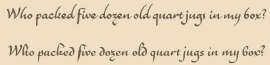 Who packed five dozen old quart jugs in my box?
Who packed five dozen old quart jugs in my box?